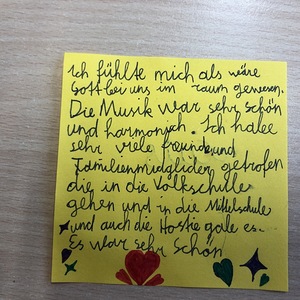 Ich fühlte mich als wäre
Gott bei uns im raum gewesen.
Die Musik war sehr schön
und harmonisch. Ich habe
sehr viele freunde und
Familienmidglider getrofen
die in die Volkschulle
gehen und in die Mittelschule
und auch die Hostie gab es.
Es war sehr schön